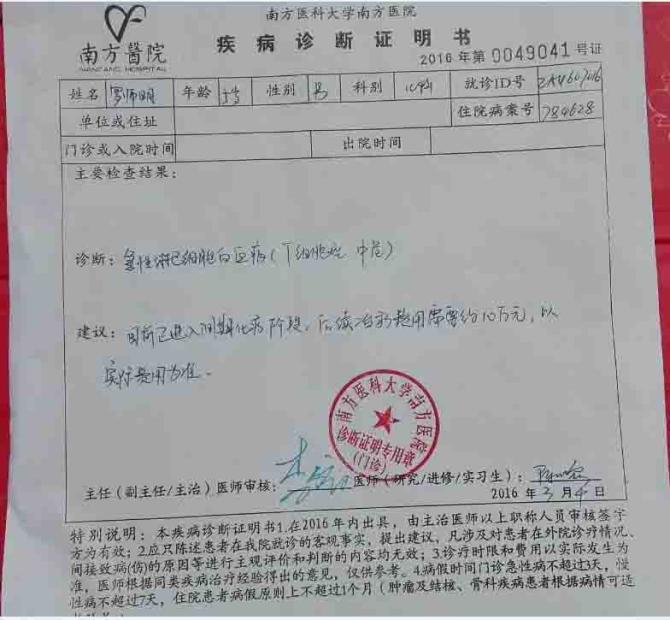 南方医科大学南方医院
南方醫院
NANFANG HOSPITAL
疾病诊断证明书
2016年第0049041号证
姓名 罗师明 年龄 5岁 性别 男 科别 就诊ID号
单位或住址 住院病案号 784628
门诊或入院时间 出院时间
主要检查结果:
诊断: 急性淋巴细胞白血病(T细胞型 中危)
建议: 目前已进入间期化疗阶段,后续治疗费用需要约10万元,以
实际费用为准。
南方医科大学南方医院
诊断证明专用章
(门诊)
主任(副主任/主治)医师审核: 医师(研究/进修/实习生):
2016年3月4日
特别说明:本疾病诊断证明书1.在2016年内出具,由主治医师以上职称人员审核签字
方为有效;2.应只陈述患者在我院就诊的客观事实,提出建议,凡涉及对患者在外院诊疗情况、
间接致病(伤)的原因等进行主观评价和判断的内容均无效;3.诊疗时限和费用以实际发生为
准,医师根据同类疾病治疗经验得出的意见,仅供参考。4.病假时间门诊急性病不超过3天,慢
性病不超过7天,住院患者病假原则上不超过1个月(肿瘤及结核、骨科疾病患者根据病情可适